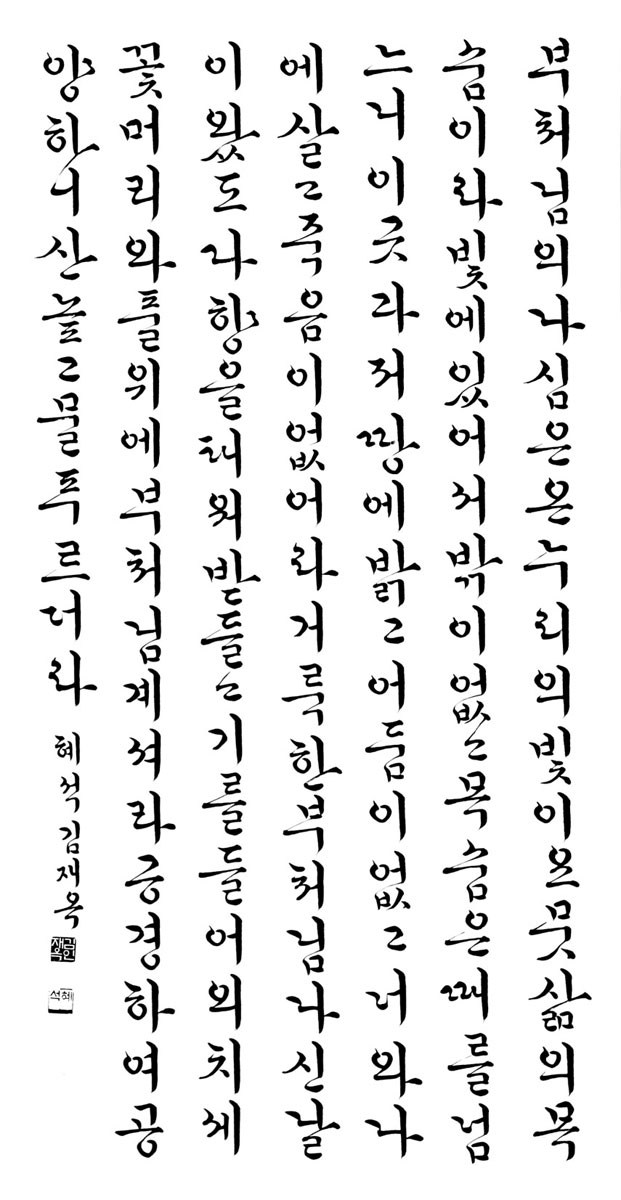 부처님의나심은온누리의빛이요뭇삶의목
숨이라빛에있어서밖이없고목숨은때를넘
느니이곳과저땅에밝고어둠이없고너와나
에살고죽음이없어라거룩한부처님나신날
이왔도다향을태워받들고기를들어외치세
꽃머리와풀위에부처님계셔라공경하여공
양하니산높고물푸르더라 혜석김재옥
김재옥인
혜석